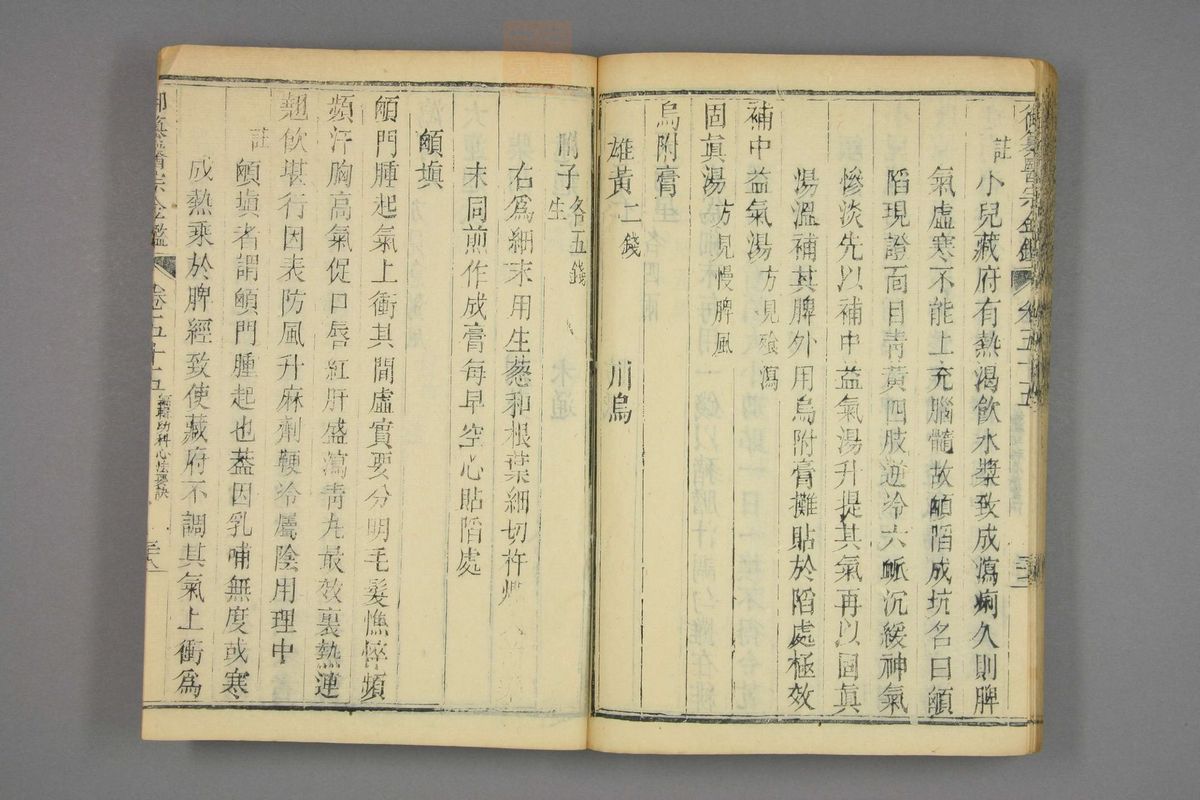 卷五十五
註
小兒藏府有熱渴飮水漿致成瀉痢久則脾
氣虛寒不能上充腦髓故顖陷成坑名曰顖
陷現證面目靑黃四肢逆冷六脈沉緩神氣
慘淡先以補中益氣湯升提其氣再以固眞
湯溫補其脾外用烏附膏攤貼於陷處極效
補中益氣湯 方見飱瀉
固眞湯 方見慢脾風
烏附膏
雄黃 二錢 川烏
附子 各五錢 生
右爲細末用生葱和根葉細切杵爛
末同煎作成膏每早空心貼陷處
顖塡
顖門腫起氣上衝其間虛實要分明毛髮憔悴頻
頻汗胸高氣促口唇紅肝盛瀉靑丸最效裏熱連
翹飮堪行因表防風升麻劑鞕冷屬陰用理中
註
顖塡者謂顖門腫起也蓋因乳哺無度或寒
或熱乘於脾經致使藏府不調其氣上衝爲
御纂醫宗金鑑 卷五十五 編輯幼科心法要訣